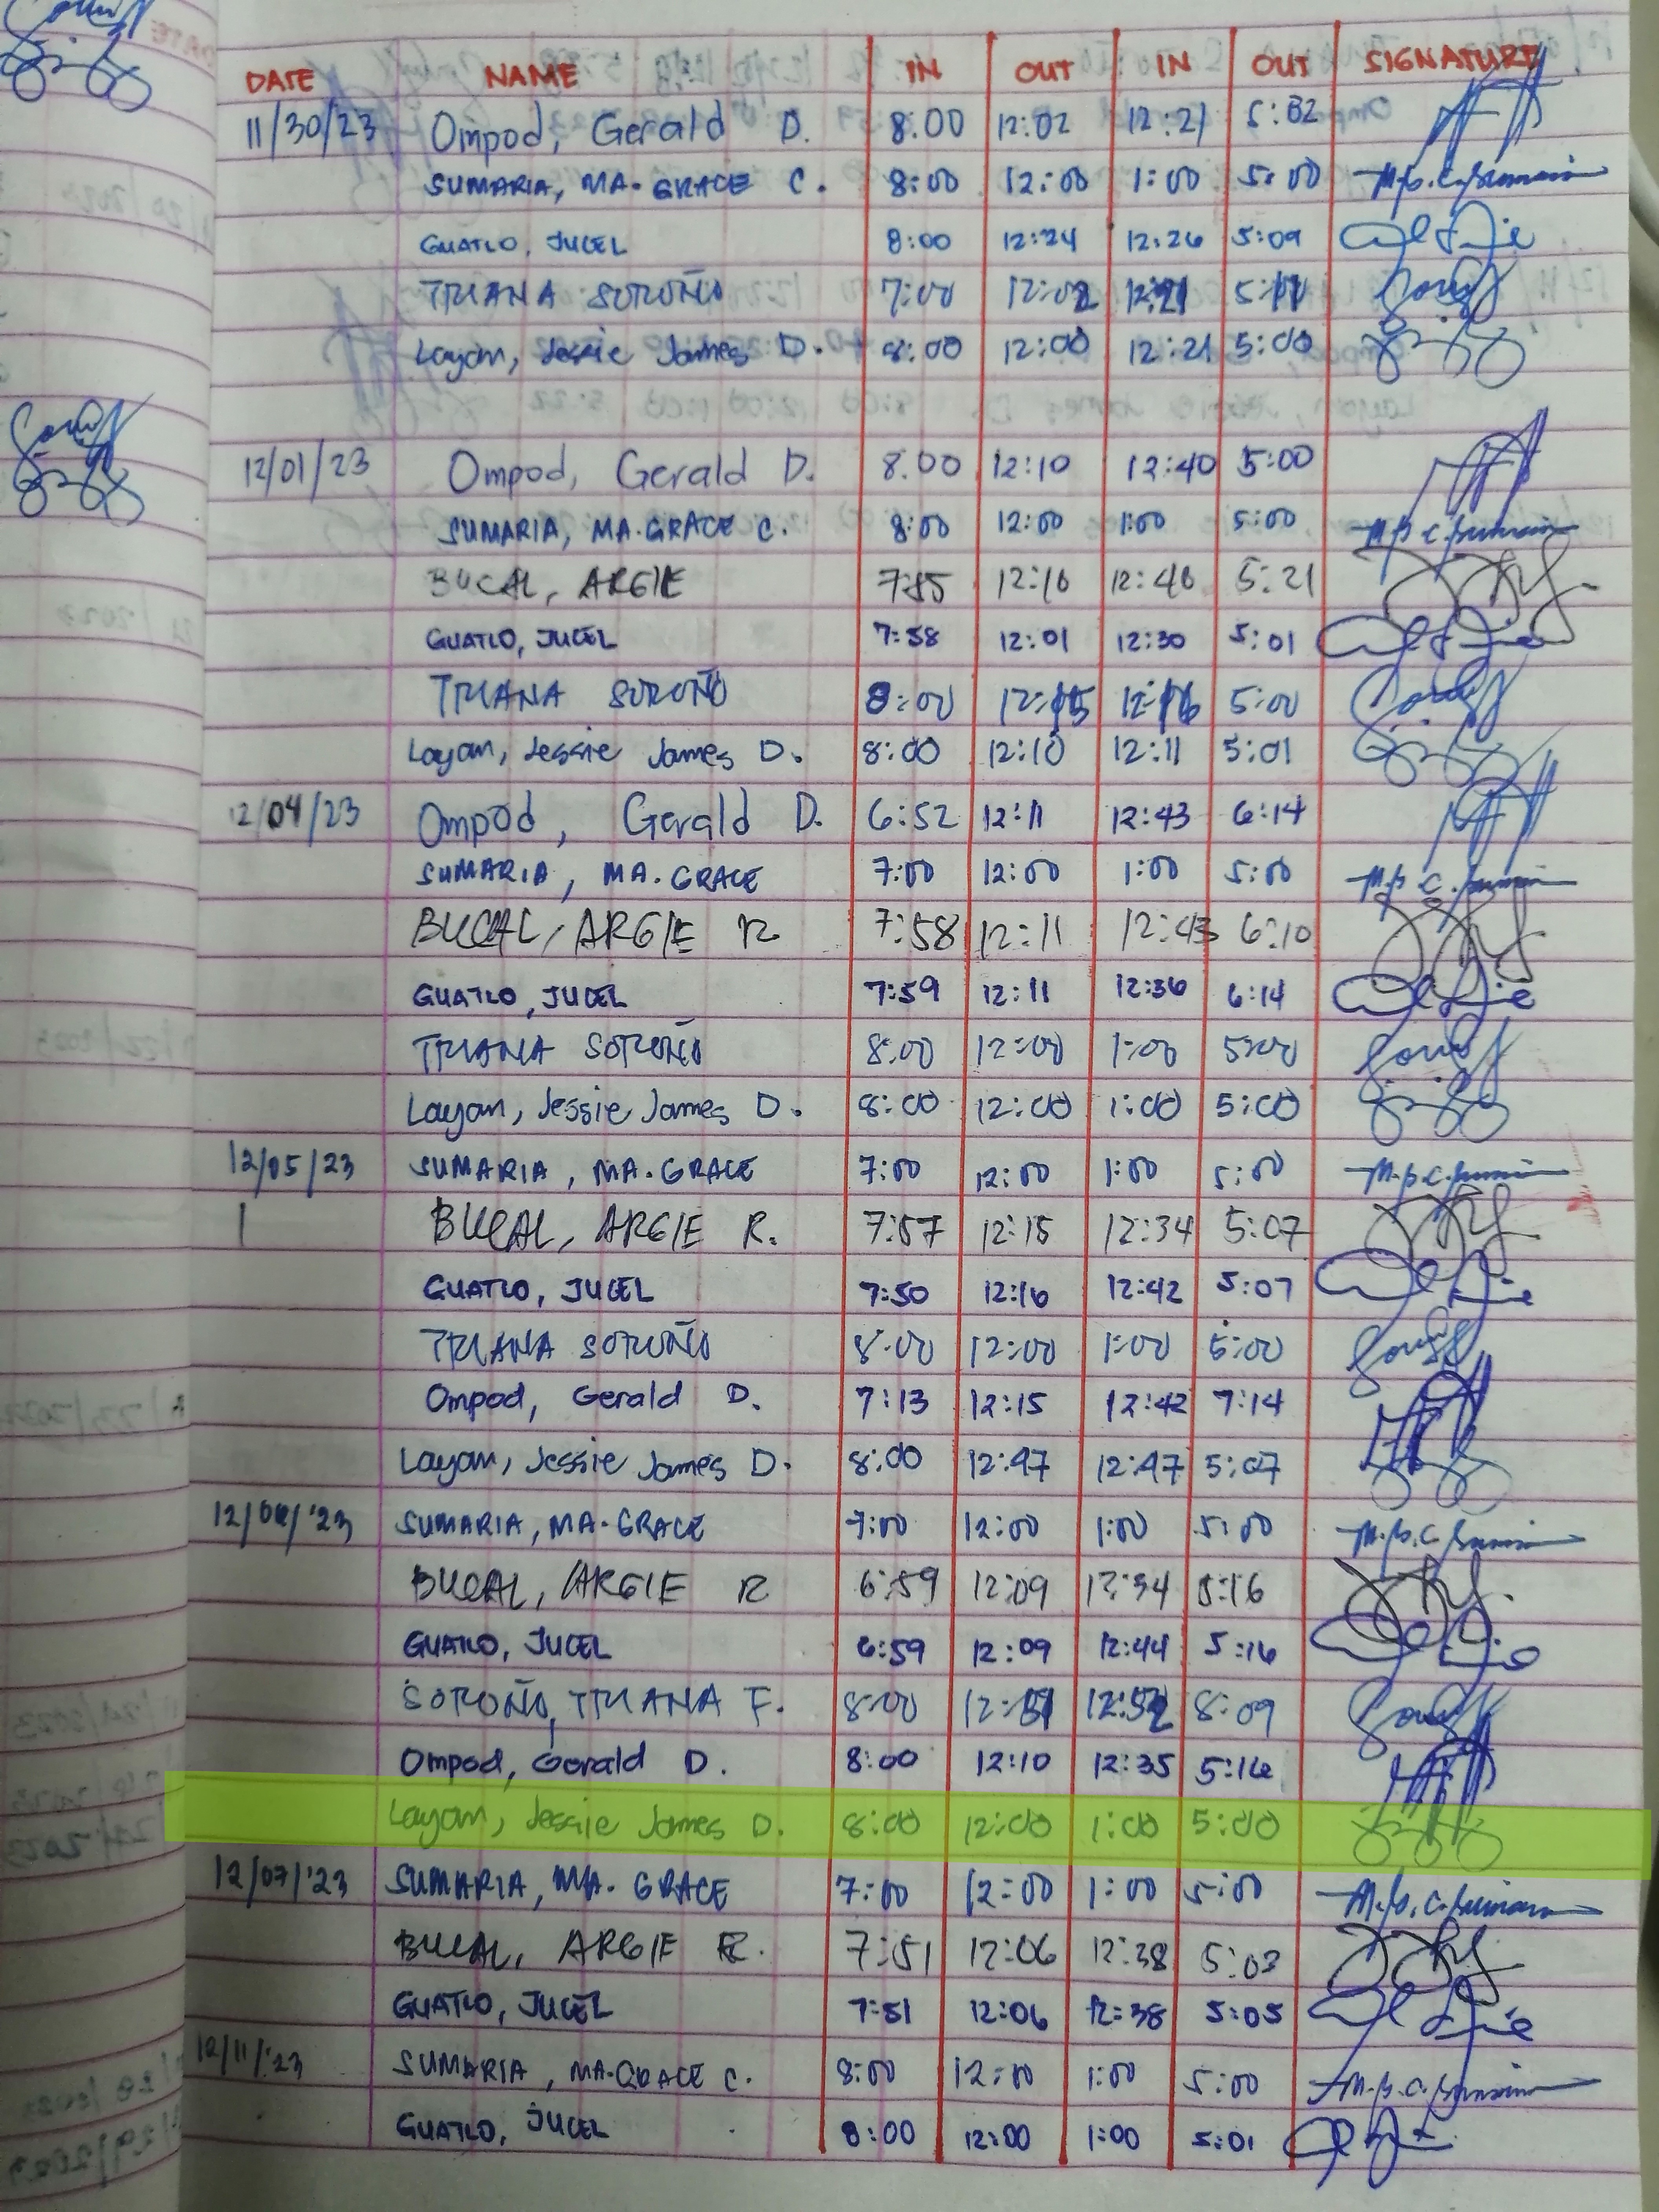 DATE NAME IN OUT IN OUT SIGNATURE
11/30/23 Ompod, Gerald D. 8.00 12:02 12:21 5:02
SUMARIA, MA. GRACE C. 8:00 12:00 1:00 5:00
GUATLO, JUCEL 8:00 12:24 12:26 5:09
TRIANA SOROÑO 7:00 12:02 12:21 5:11
Layan, Jessie James D. 8:00 12:00 12:21 5:00
12/01/23 Ompod, Gerald D. 8.00 12:10 12:40 5:00
SUMARIA, MA. GRACE C. 8:00 12:00 1:00 5:00
BUCAL, ARGIE 12:16 12:46 5:21
GUATLO, JUCEL 7:58 12:01 12:30 5:01
TRIANA SOROÑO 8:00 12:15 12:16 5:00
Layan, Jessie James D. 8:00 12:10 12:11 5:01
12/04/23 Ompod, Gerald D. 6:52 12:11 12:43 6:14
SUMARIA, MA. GRACE 7:00 12:00 1:00 5:00
BUCAL, ARGIE R 7:58 12:11 12:43 6:10
GUATLO, JUCEL 7:59 12:11 12:36 6:14
TRIANA SOROÑO 8:00 12:00 1:00 5:00
Layan, Jessie James D. 8:00 12:00 1:00 5:00
12/05/23 SUMARIA, MA. GRACE 7:00 12:00 1:00 5:00
BUCAL, ARGIE R. 7:57 12:15 12:34 5:07
GUATLO, JUCEL 7:50 12:16 12:42 5:07
TRIANA SOROÑO 8:00 12:00 1:00 5:00
Ompod, Gerald D. 7:13 12:15 12:42 7:14
Layan, Jessie James D. 8:00 12:47 12:47 5:07
12/06/'23 SUMARIA, MA. GRACE 7:00 12:00 1:00 5:00
BUCAL, ARGIE R 6:59 12:09 12:34 5:16
GUATLO, JUCEL 6:59 12:09 12:44 5:16
SOROÑO, TRIANA F. 8:00 12:51 12:52 8:09
Ompod, Gerald D. 8:00 12:10 12:35 5:16
Layan, Jessie James D. 8:00 12:00 1:00 5:00
12/07/'23 SUMARIA, MA. GRACE 7:00 12:00 1:00 5:00
BUCAL, ARGIE R. 7:51 12:06 12:38 5:03
GUATLO, JUCEL 7:51 12:06 12:38 5:05
12/11/'23 SUMARIA, MA. GRACE C. 8:00 12:00 1:00 5:00
GUATLO, JUCEL 8:00 12:00 1:00 5:01